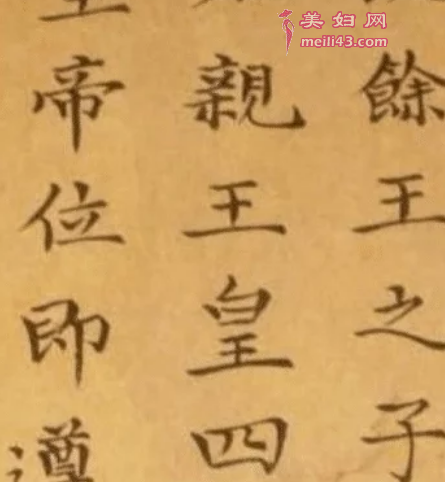 美妇网
meili43.com
餘王之子
親王皇四
帝位即遵